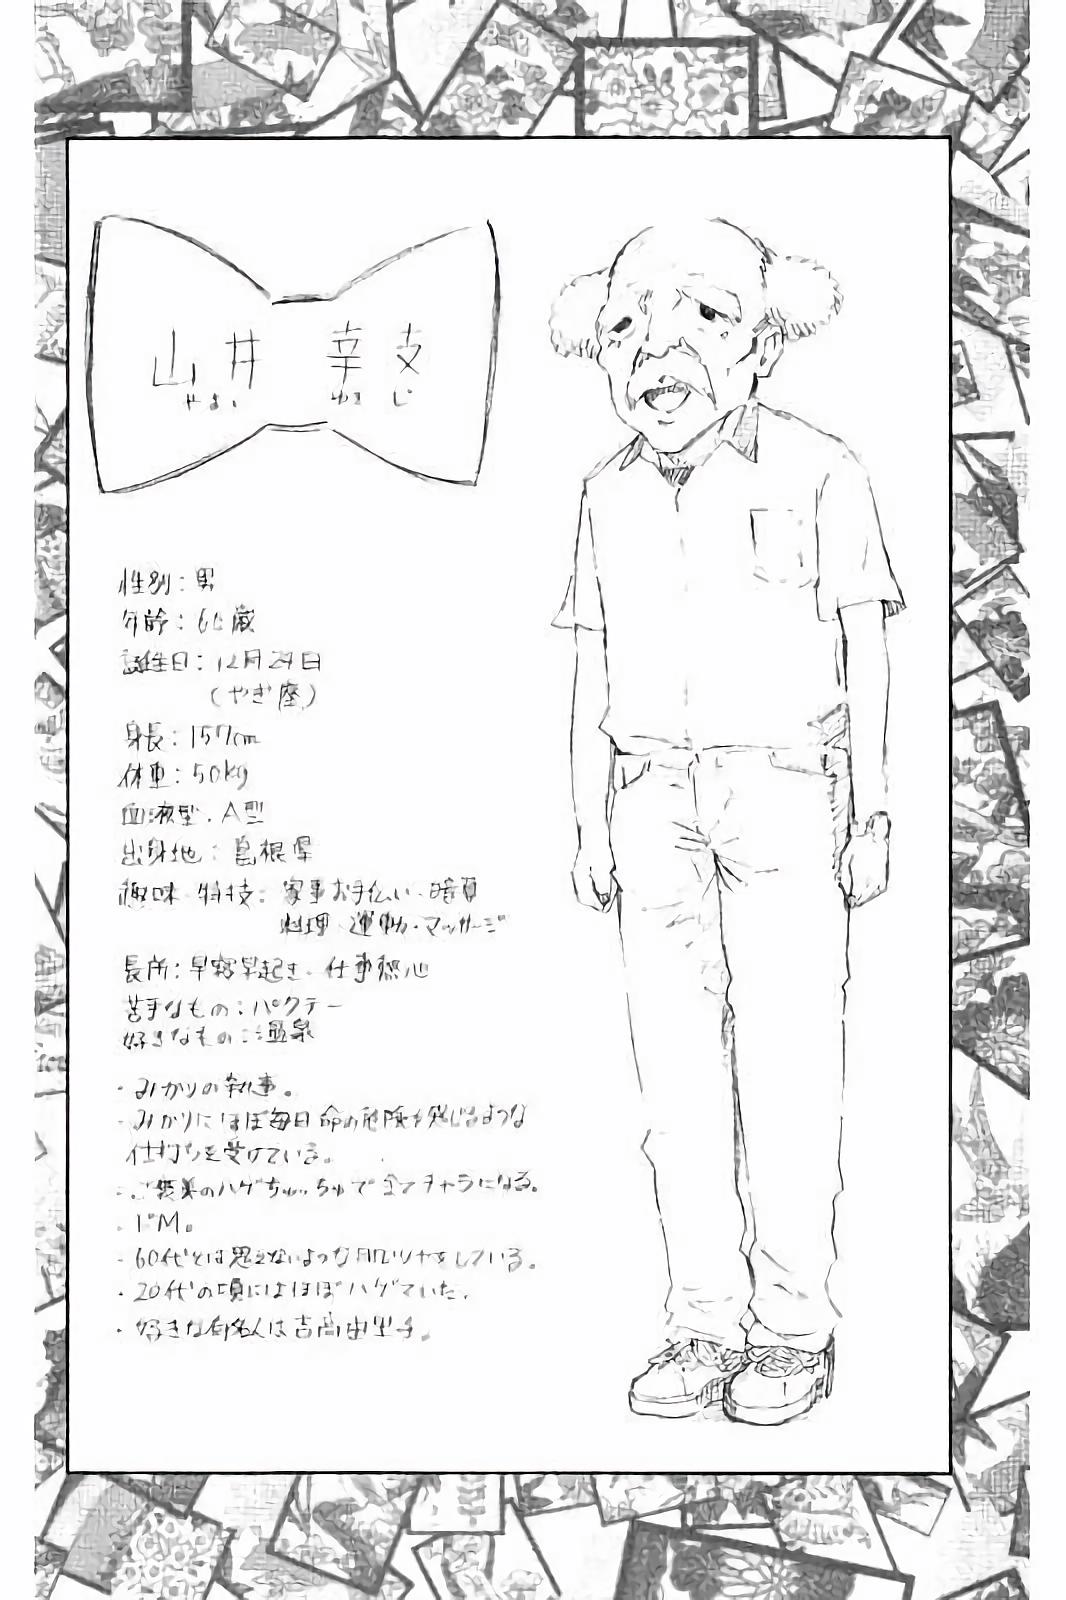 山井 幸支
やまい ゆきじ
性別：男
年齢：6歳
誕生日：12月29日
（やぎ座）
身長：157cm
体重：50kg
血液型．A型
出身地：島根県
趣味・特技：家事お手伝い・暗算
料理・運動・マッサージ
長所：早寝早起き・仕事熱心
苦手なもの：パクチー
好きなもの：温泉
・みかりの執事。
・みかりにほぼ毎日命の危険を感じるような
仕打ちを受けている。
・ご褒美のハゲちゅっちゅで全てチャラになる。
・ドM。
・60代とは思えないような肌ツヤをしている。
・20代の頃にはほぼハゲていた。
・好きな有名人は吉高由里子。